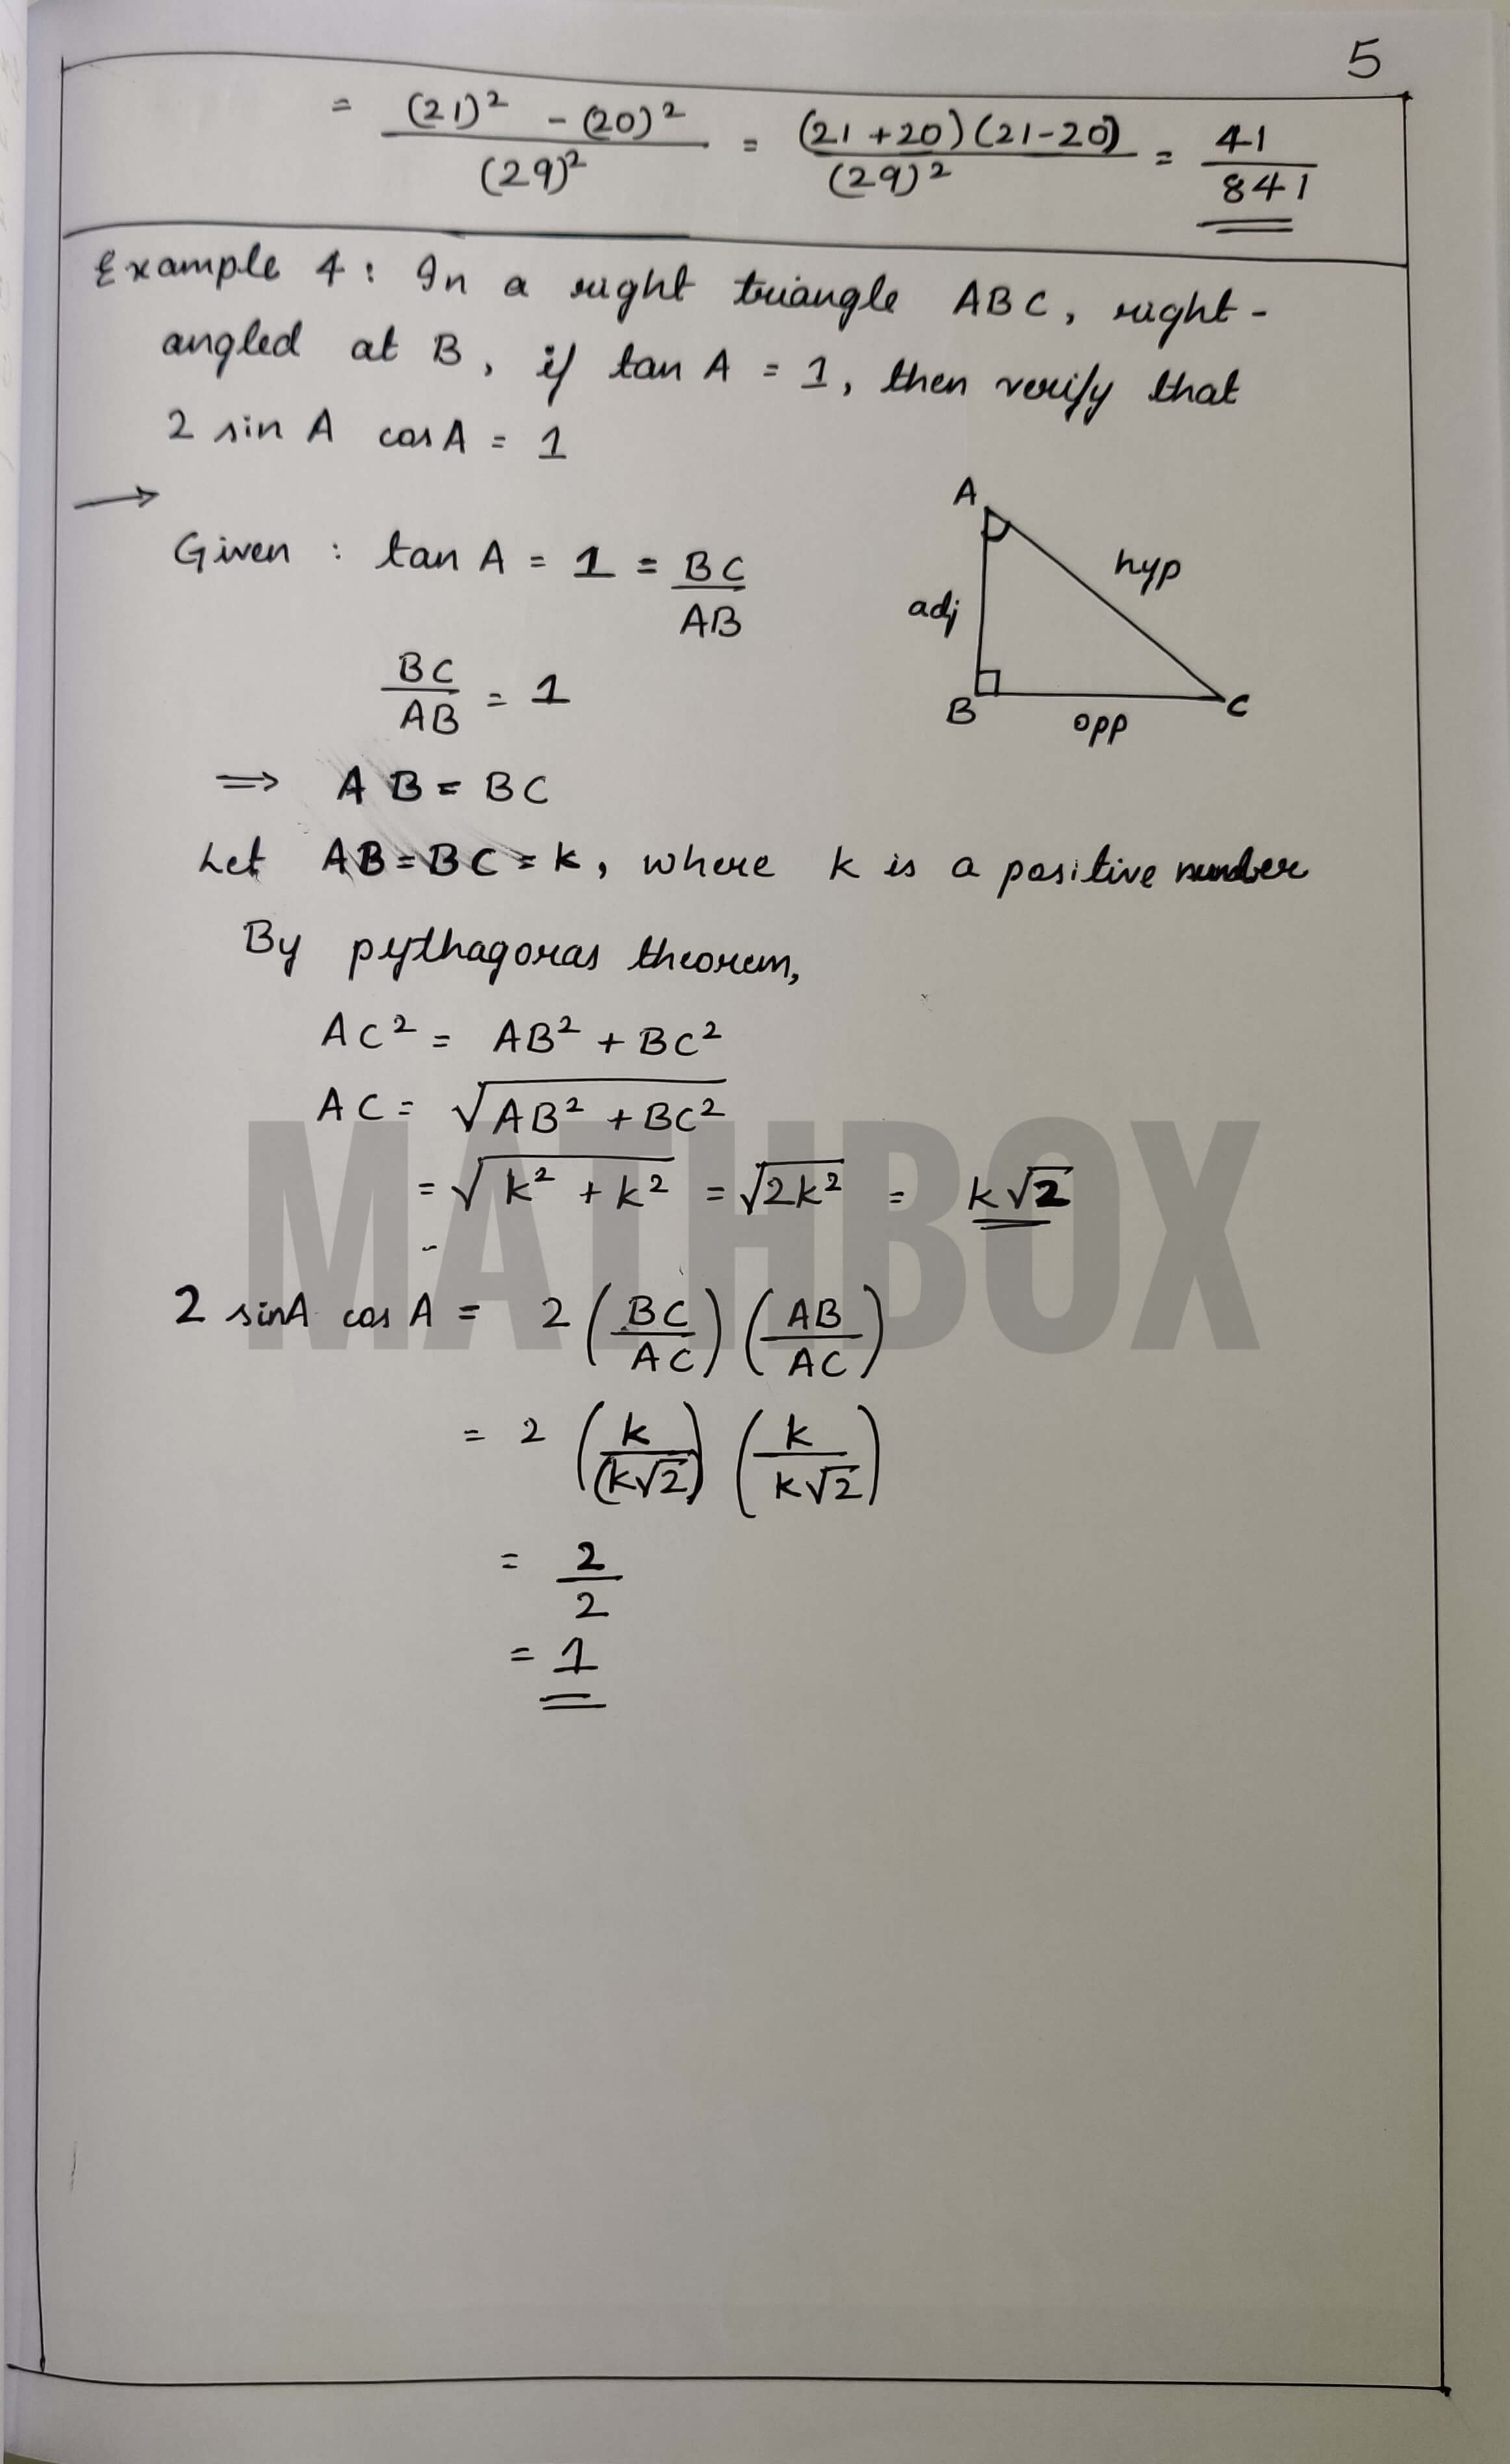 5
= (21)² - (20)² / (29)² = (21+20)(21-20) / (29)² = 41/841
Example 4: In a right triangle ABC, right-
angled at B, if tan A = 1, then verify that
2 sin A cos A = 1
→
A
Given : tan A = 1 = BC/AB
hyp
adj
BC/AB = 1
B
C
opp
⇒ AB = BC
Let AB = BC = k, where k is a positive number
By pythagoras theorem,
AC² = AB² + BC²
AC = √(AB² + BC²)
= √(k² + k²) = √(2k²) = k√2
MATHBOX
2 sinA cos A = 2 (BC/AC) (AB/AC)
= 2 (k/(k√2)) (k/k√2)
= 2/2
= 1